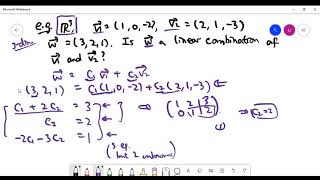 Microsoft Whiteboard
e.g. ℝ³, v₁ = (1, 0, -2), v₂ = (2, 1, -3)
w = (3, 2, 1). Is w a linear combination of
v₁ and v₂?
w = c₁ v₁ + c₂ v₂
(3, 2, 1) = c₁(1, 0, -2) + c₂(2, 1, -3) ←
c₁ + 2c₂ = 3 ←
c₂ = 2 ←
-2c₁ - 3c₂ = 1 ←
⇒ (1 2 | 3
0 1 | 2)
⇒ c₂ = 2
(3 eq.
but 2 unknowns)